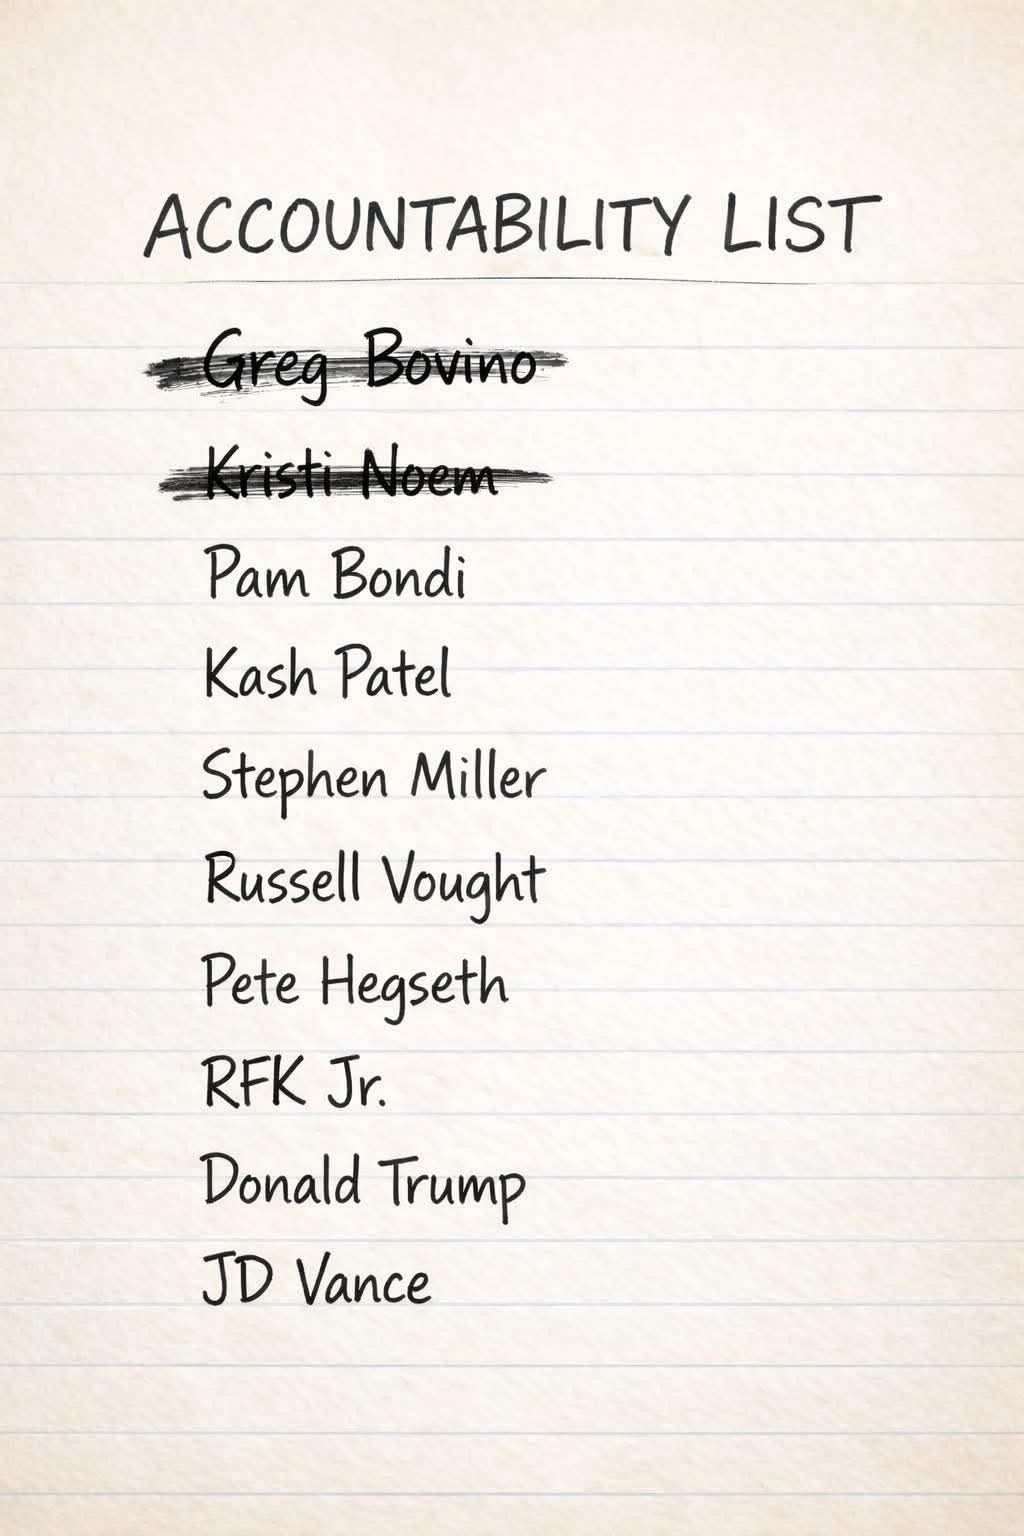 ACCOUNTABILITY LIST
Greg Bovino
Kristi Noem
Pam Bondi
Kash Patel
Stephen Miller
Russell Vought
Pete Hegseth
RFK Jr.
Donald Trump
JD Vance